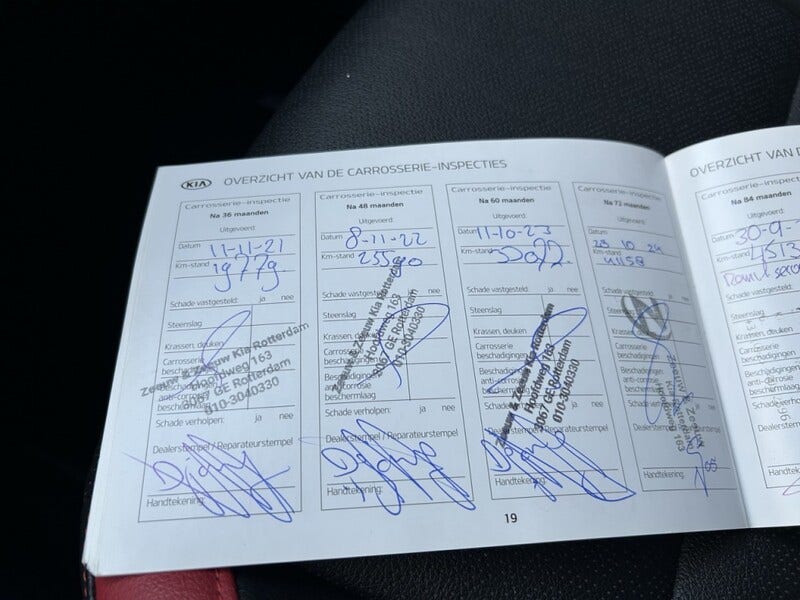 KIA OVERZICHT VAN DE CARROSSERIE-INSPECTIES
Carrosserie-inspectie
Na 36 maanden
Uitgevoerd:
Datum 11-11-21
Km-stand 19779
Schade vastgesteld: ja nee
Steenslag
Krassen, deuken
Carrosserie beschadigingen
Beschadigingen anti-corrosie beschermlaag
Zeeuw & Zeeuw Kia Rotterdam
Hoofdweg 163
3067 GE Rotterdam
010-3040330
Schade verholpen: ja nee
Dealerstempel / Reparateurstempel
Handtekening:
Carrosserie-inspectie
Na 48 maanden
Uitgevoerd:
Datum 8-11-22
Km-stand
Schade vastgesteld: ja nee
Steenslag
Krassen, deuken
Carrosserie beschadigingen
Beschadigingen anti-corrosie beschermlaag
Zeeuw & Zeeuw Kia Rotterdam
Hoofdweg 163
3067 GE Rotterdam
010-3040330
Schade verholpen: ja nee
Dealerstempel / Reparateurstempel
Handtekening:
Carrosserie-inspectie
Na 60 maanden
Uitgevoerd:
Datum 11-10-23
Km-stand
Schade vastgesteld: ja nee
Steenslag
Krassen, deuken
Carrosserie beschadigingen
Beschadigingen anti-corrosie beschermlaag
Zeeuw & Zeeuw Kia Rotterdam
Hoofdweg 163
3067 GE Rotterdam
010-3040330
Schade verholpen: ja nee
Dealerstempel / Reparateurstempel
Handtekening:
Carrosserie-inspectie
Na 72 maanden
Uitgevoerd:
Datum 23 10 24
Km-stand 41158
Schade vastgesteld: ja nee
Steenslag
Krassen, deuken
Carrosserie beschadigingen
Beschadigingen anti-corrosie beschermlaag
Zeeuw & Zeeuw
Kia Rotterdam
Hoofdweg 163
Schade verholpen: ja nee
Dealerstempel / Reparateurstempel
Handtekening:
19
OVERZICHT VAN DE
Carrosserie-inspectie
Na 84 maanden
Uitgevoerd:
Datum 30-9-
Km-stand 4513
Schade vastgesteld:
Steenslag
Krassen, deuken
Carrosserie beschadigingen
Beschadigingen anti-corrosie beschermlaag
Schade verholpen:
Dealerstempel
Handtekening: